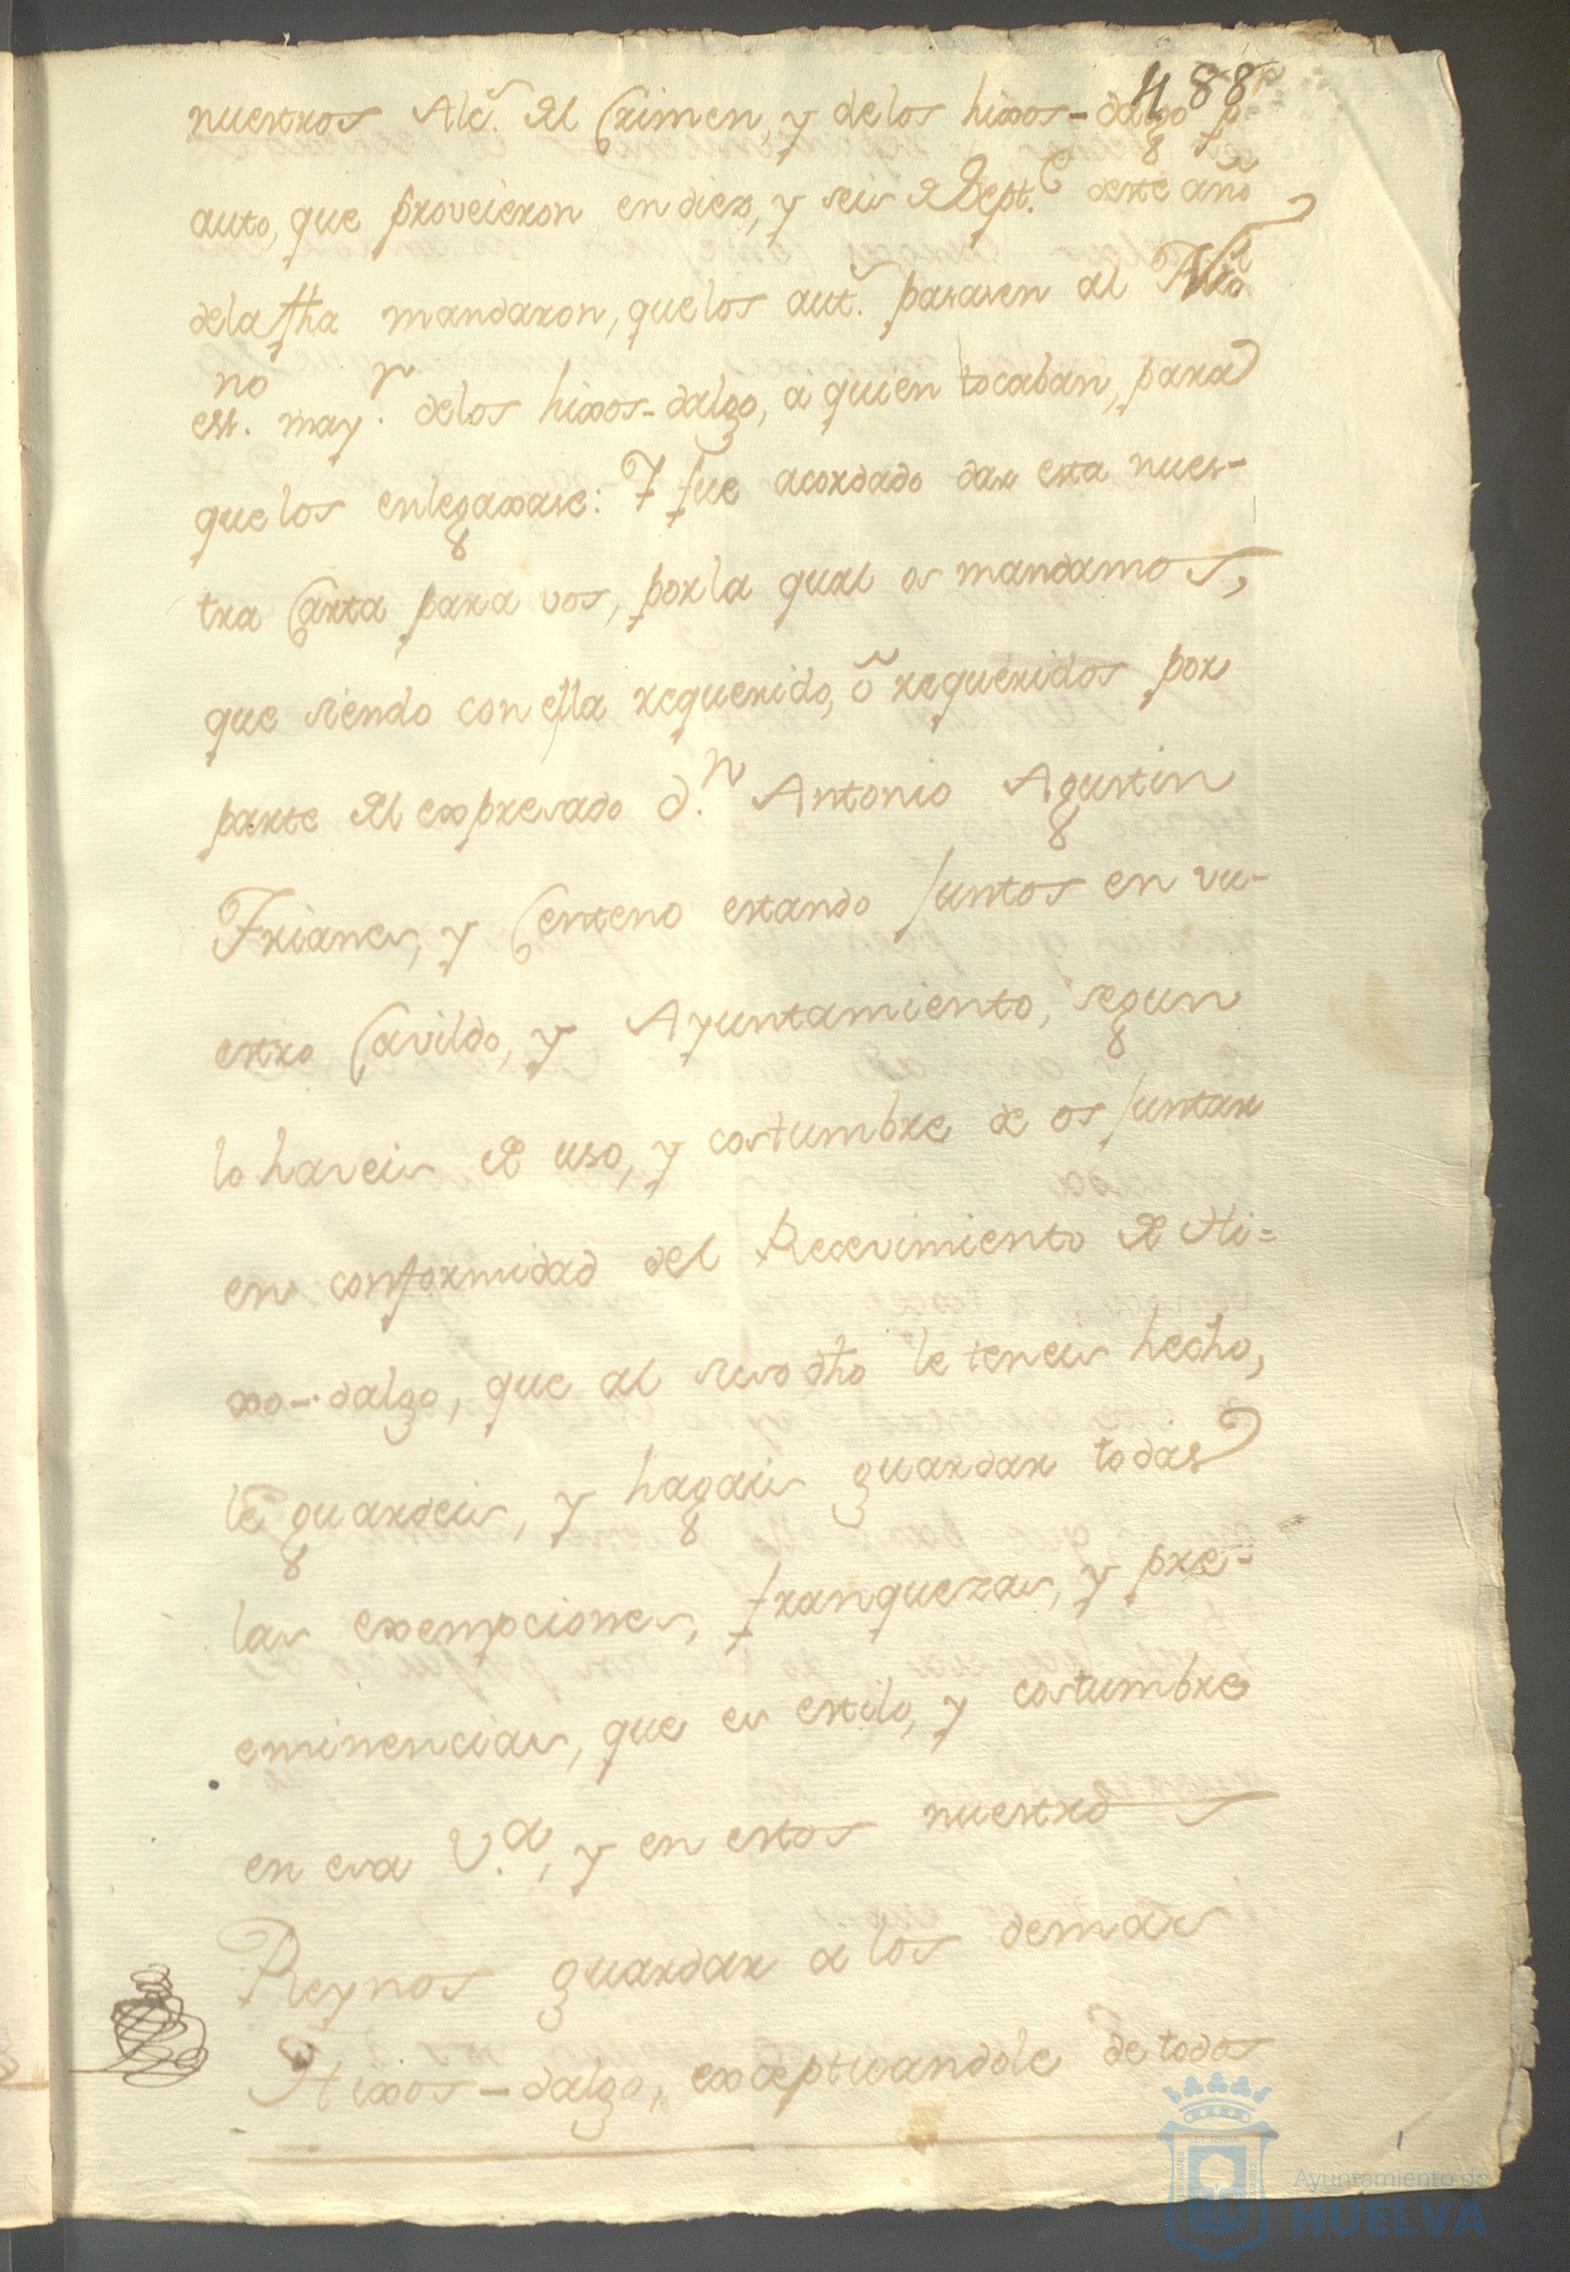 488
nuestros Alc.s del Crimen, y delos hixos-dalgo p.r
auto, que proveieron en diez, y seis de Sept.e deste año
dela fha mandaron, quelos aut.s pasasen al
ess.no may.r delos hixos-dalgo, a quien tocaban, para
quelos enlegaxase: Y fue acordado dar esta nues-
tra Carta para vos, porla qual os mandamos,
que siendo con ella requerido, ò requeridos por
parte del expresado d.n Antonio Agustin
Frianes, y Centeno estando Juntos en vu-
estro Cavildo, y Ayuntamiento, segun
lo haveis de uso, y costumbre de os Juntar
en conformidad del Recevimiento de Hi=
xo-dalgo, que al suso dho le teneis hecho,
le guardeis, y hagais guardar todas
las exempciones, franquezas, y pre-
eminencias, que es estilo, y costumbre
en esa V.a, y en estos nuestros
Reynos guardar à los demas
Hixos-dalgo, exceptuandole de todos
Ayuntamiento de
HUELVA